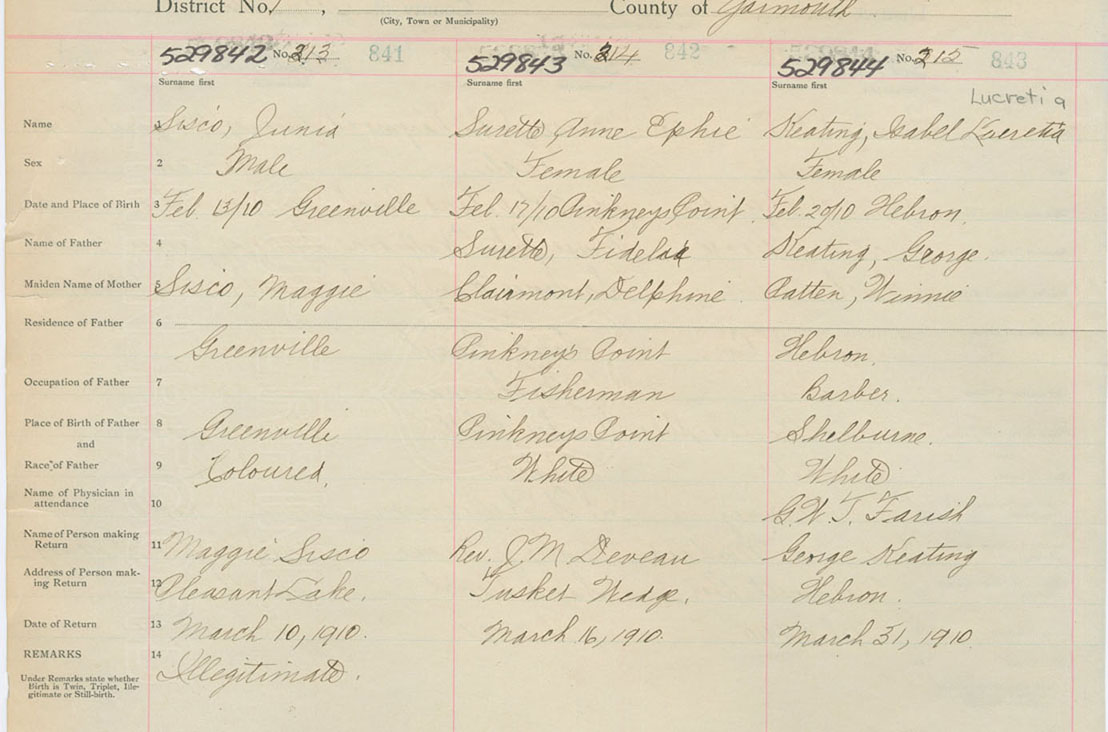 District No. 1 , County of Yarmouth
(City, Town or Municipality)
529842 No. 213 841 529843 No. 214 842 529844 No. 215 843
Surname first Surname first Surname first
Lucretia
Name 1 Sisco, Junia Surette, Anne Ephie Keating, Isabel Lucretia
Sex 2 Male Female Female
Date and Place of Birth 3 Feb. 13/10 Greenville Feb. 17/10 Pinkneys Point Feb. 20/10 Hebron
Name of Father 4 Surette, Fidele Keating, George.
Maiden Name of Mother 5 Sisco, Maggie Clairmont, Delphine Patten, Winnie
Residence of Father 6
Greenville Pinkney's Point Hebron.
Occupation of Father 7 Fisherman Barber.
Place of Birth of Father 8 Greenville Pinkneys Point Shelburne.
and
Race of Father 9 Coloured. White White
Name of Physician in
attendance 10 G.W.T. Farish
Name of Person making
Return 11 Maggie Sisco Rev. J.M Deveau George Keating
Address of Person mak-
ing Return 12 Pleasant Lake. Tusket Wedge. Hebron.
Date of Return 13 March 10, 1910. March 16, 1910. March 31, 1910
REMARKS 14 Illegitimate.
Under Remarks state whether
Birth is Twin, Triplet, Ille-
gitimate or Still-birth.